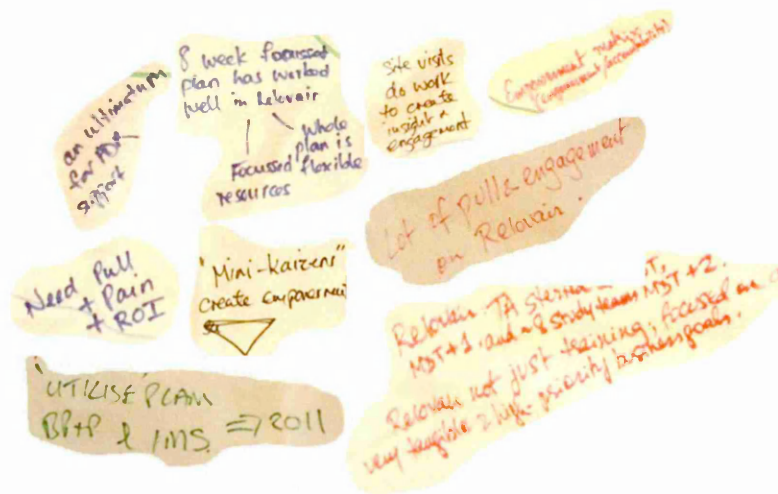 an ultimatum
for PDP
support
8 week focussed
plan has worked
well in Relovair
Focussed
resources
Whole
plan is
flexible
Site visits
do work
to create
insight &
engagement
Empowerment
Lot of pull & engagement
on Relovair.
Need Pull
+ Pain
+ ROI
"Mini-Kaizens"
create empowerment
'UTILISE' PLAN
BP+P & IMS. ⇒ 2011
Relovair TA
MDT+1, and ~8 study teams MDT+2.
Relovair not just training, focused on
very tangible & high priority business goals.